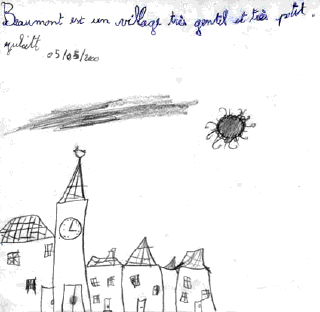 Beaumont est un village très gentil et très petit.
05/05/2000